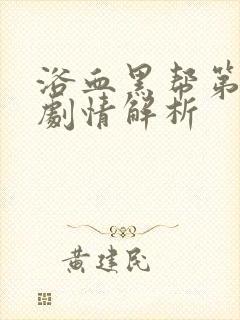 浴血黑帮第
劇情解析
黄建民